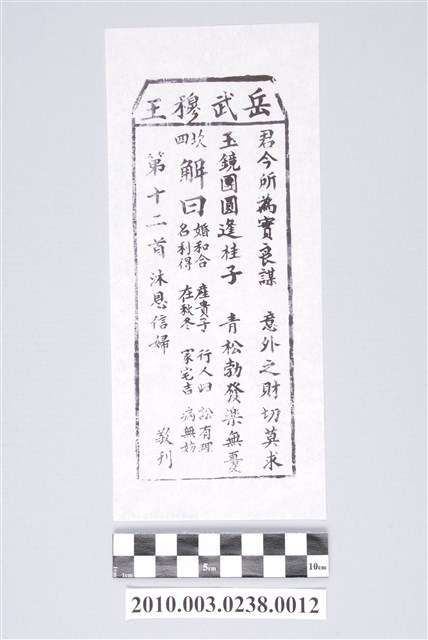 岳武穆王
君今所為實良謀 意外之財切莫求
玉鏡團圓逢桂子 青松勃發樂無憂
坎四 解曰 婚和合 產貴子 行人歸 訟有理
名利得 在秋冬 家宅吉 病無妨
第十二首 沐恩信婦 敬刊
1cm 5cm 10cm
2010.003.0238.0012